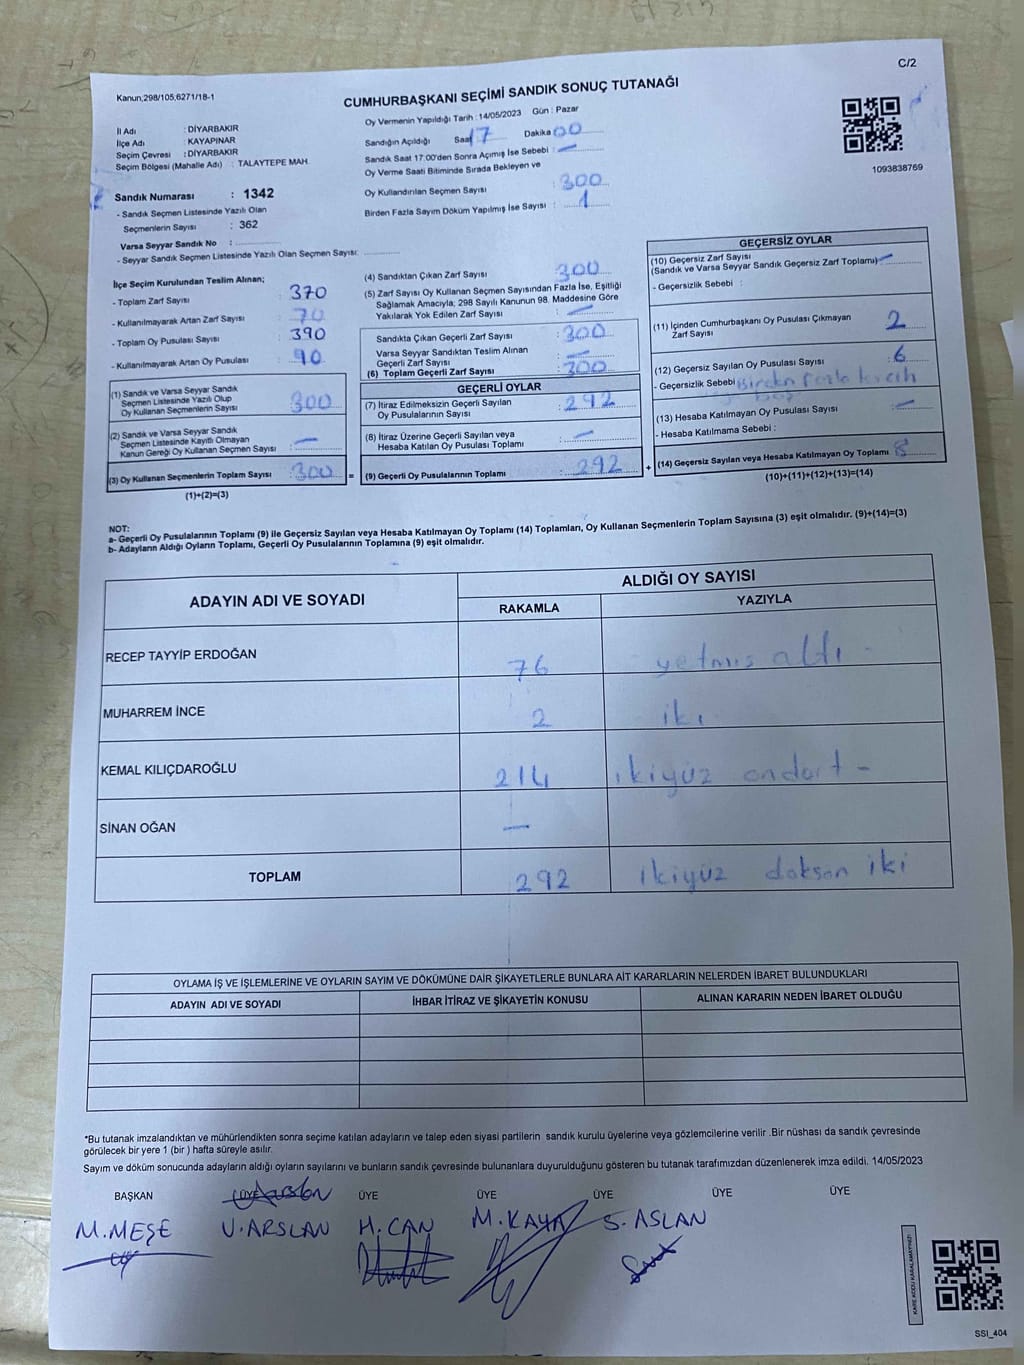 C/2
Kanun,298/105,6271/18-1
CUMHURBAŞKANI SEÇİMİ SANDIK SONUÇ TUTANAĞI
İl Adı : DİYARBAKIR
İlçe Adı : KAYAPINAR
Seçim Çevresi : DİYARBAKIR
Seçim Bölgesi (Mahalle Adı) : TALAYTEPE MAH.
Sandık Numarası : 1342
- Sandık Seçmen Listesinde Yazılı Olan
Seçmenlerin Sayısı : 362
Varsa Seyyar Sandık No :
- Seyyar Sandık Seçmen Listesinde Yazılı Olan Seçmen Sayısı:
Oy Vermenin Yapıldığı Tarih :14/05/2023 Gün : Pazar
Sandığın Açıldığı Saat 17 Dakika 00
Sandık Saat 17:00'den Sonra Açımış İse Sebebi : —
Oy Verme Saati Bitiminde Sırada Bekleyen ve
Oy Kullandırılan Seçmen Sayısı : 300
Birden Fazla Sayım Döküm Yapılmış İse Sayısı : 1
1093838769
İlçe Seçim Kurulundan Teslim Alınan;
- Toplam Zarf Sayısı : 370
- Kullanılmayarak Artan Zarf Sayısı : 70
- Toplam Oy Pusulası Sayısı : 390
- Kullanılmayarak Artan Oy Pusulası : 90
(1) Sandık ve Varsa Seyyar Sandık
Seçmen Listesinde Yazılı Olup
Oy Kullanan Seçmenlerin Sayısı : 300
(2) Sandık ve Varsa Seyyar Sandık
Seçmen Listesinde Kayıtlı Olmayan
Kanun Gereği Oy Kullanan Seçmen Sayısı : —
(3) Oy Kullanan Seçmenlerin Toplam Sayısı : 300 =
(1)+(2)=(3)
(4) Sandıktan Çıkan Zarf Sayısı : 300
(5) Zarf Sayısı Oy Kullanan Seçmen Sayısından Fazla İse, Eşitliği
Sağlamak Amacıyla; 298 Sayılı Kanunun 98. Maddesine Göre
Yakılarak Yok Edilen Zarf Sayısı : —
Sandıkta Çıkan Geçerli Zarf Sayısı : 300
Varsa Seyyar Sandıktan Teslim Alınan
Geçerli Zarf Sayısı : —
(6) Toplam Geçerli Zarf Sayısı : 300
GEÇERLİ OYLAR
(7) İtiraz Edilmeksizin Geçerli Sayılan
Oy Pusulalarının Sayısı : 292
(8) İtiraz Üzerine Geçerli Sayılan veya
Hesaba Katılan Oy Pusulası Toplamı : —
(9) Geçerli Oy Pusulalarının Toplamı : 292 +
GEÇERSİZ OYLAR
(10) Geçersiz Zarf Sayısı
(Sandık ve Varsa Seyyar Sandık Geçersiz Zarf Toplamı) —
- Geçersizlik Sebebi :
(11) İçinden Cumhurbaşkanı Oy Pusulası Çıkmayan
Zarf Sayısı : 2
(12) Geçersiz Sayılan Oy Pusulası Sayısı : 6
- Geçersizlik Sebebi : Birden fazla tercih
(13) Hesaba Katılmayan Oy Pusulası Sayısı : —
- Hesaba Katılmama Sebebi :
(14) Geçersiz Sayılan veya Hesaba Katılmayan Oy Toplamı : 8
(10)+(11)+(12)+(13)=(14)
NOT:
a- Geçerli Oy Pusulalarının Toplamı (9) ile Geçersiz Sayılan veya Hesaba Katılmayan Oy Toplamı (14) Toplamları, Oy Kullanan Seçmenlerin Toplam Sayısına (3) eşit olmalıdır. (9)+(14)=(3)
b- Adayların Aldığı Oyların Toplamı, Geçerli Oy Pusulalarının Toplamına (9) eşit olmalıdır.
ADAYIN ADI VE SOYADI
ALDIĞI OY SAYISI
RAKAMLA YAZIYLA
RECEP TAYYİP ERDOĞAN 76 - yetmiş altı -
MUHARREM İNCE 2 iki
KEMAL KILIÇDAROĞLU 214 ikiyüz ondört -
SİNAN OĞAN —
TOPLAM 292 ikiyüz doksan iki
OYLAMA İŞ VE İŞLEMLERİNE VE OYLARIN SAYIM VE DÖKÜMÜNE DAİR ŞİKAYETLERLE BUNLARA AİT KARARLARIN NELERDEN İBARET BULUNDUKLARI
ADAYIN ADI VE SOYADI İHBAR İTİRAZ VE ŞİKAYETİN KONUSU ALINAN KARARIN NEDEN İBARET OLDUĞU
*Bu tutanak imzalandıktan ve mühürlendikten sonra seçime katılan adayların ve talep eden siyasi partilerin sandık kurulu üyelerine veya gözlemcilerine verilir .Bir nüshası da sandık çevresinde
görülecek bir yere 1 (bir ) hafta süreyle asılır.
Sayım ve döküm sonucunda adayların aldığı oyların sayılarını ve bunların sandık çevresinde bulunanlara duyurulduğunu gösteren bu tutanak tarafımızdan düzenlenerek imza edildi. 14/05/2023
BAŞKAN ÜYE ÜYE ÜYE ÜYE ÜYE ÜYE
M.MEŞE U.ARSLAN H.CAN M.KAYA S.ASLAN
KARE KODU KARALAMAYINIZ!
SSI_404